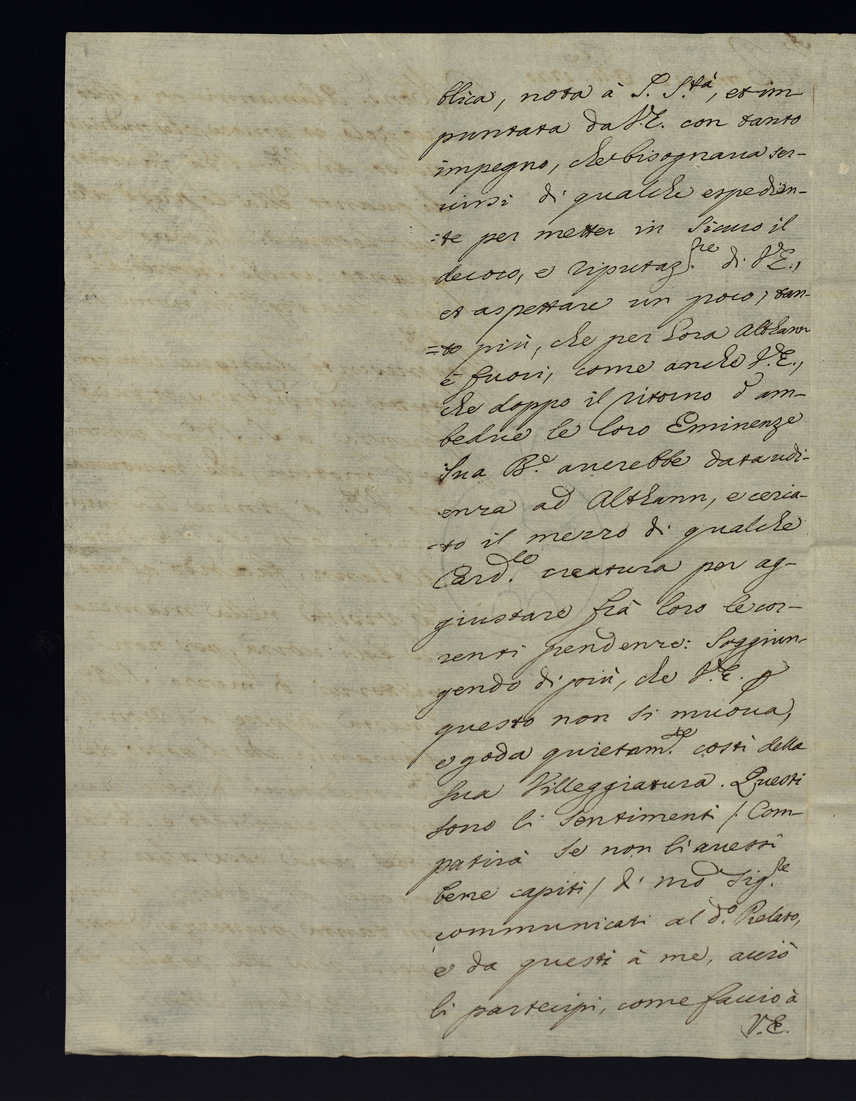 blica, nota à S. S.tà, et im-
puntata da V.E. con tanto
impegno, che bisognaua ser-
uirsi di qualche espedien-
:te per metter in Sicuro il
decoro, e riputaz.ne di V.E.,
et aspettare un poco; tan-
=to più, che per hora Althann
è fuori, come anche V.E.,
che doppo il ritorno d'am-
bedue le loro Eminenze
Sua B.e auerebbe data udi-
enza ad Althann, e cerca-
=to il mezzo di qualche
Card.le creatura per ag-
giustare frà loro le cor-
renti pendenze: Soggiun-
gendo di più, che V.E. p
questo non si muoua,
e goda quietam.te costì della
Sua Villeggiatura. Questi
sono li Sentimenti /: Com-
patirà se non li auessi
bene capiti / di mo Sig.re
communicati al d.o Prelato,
e da questi à me, acciò
li partecipi, come faccio à
V.E.